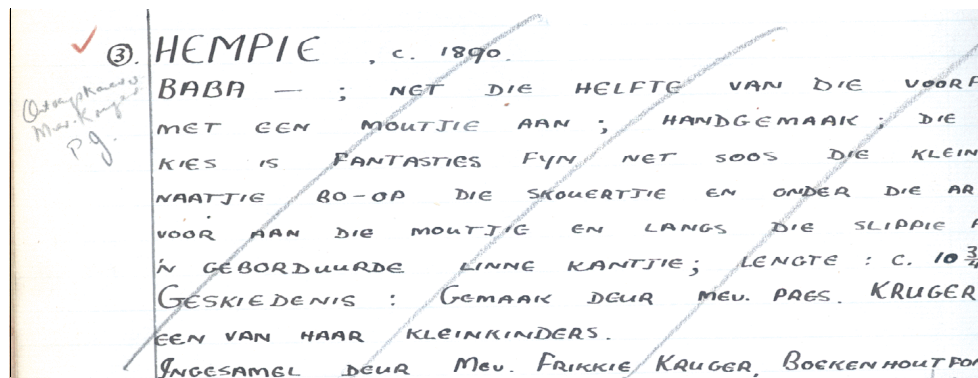 ③. HEMPIE , c. 1890.
BABA — ; NET DIE HELFTE VAN DIE VOORP
MET EEN MOUTJIE AAN ; HANDGEMAAK ; DIE
KIES IS FANTASTIES FYN NET SOOS DIE KLEIN
NAATJIE BO-OP DIE SKOUERTJIE EN ONDER DIE AR
VOOR AAN DIE MOUTJIE EN LANGS DIE SLIPPIE
'N GEBORDUURDE LINNE KANTJIE ; LENGTE : C. 10 3/4
GESKIEDENIS : GEMAAK DEUR MEV. PRES. KRUGER
EEN VAN HAAR KLEINKINDERS.
INGESAMEL DEUR MEV. FRIKKIE KRUGER, BOEKENHOUTFON
Mev. Kruger
P.J.